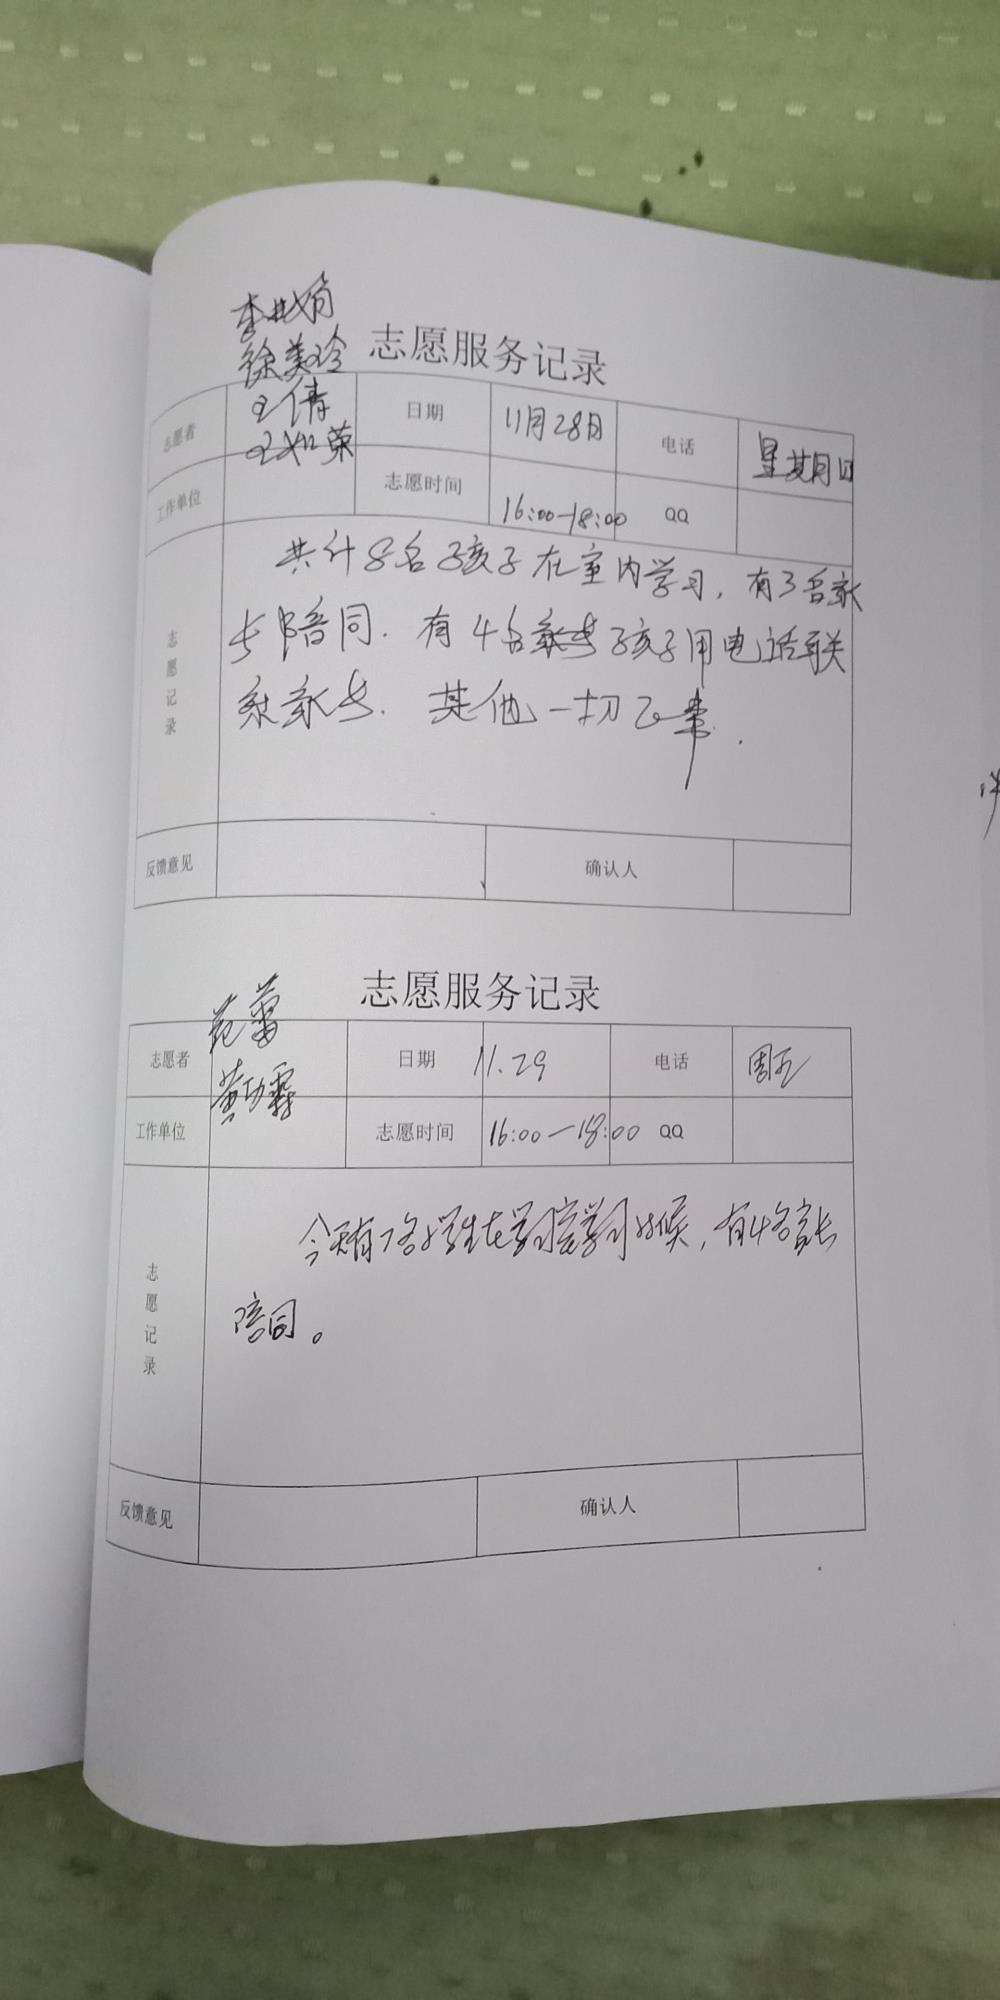 徐美玲
志愿服务记录
志愿者 王倩 日期 11月28日 电话 星期日
王如荣
工作单位 志愿时间 16:00-18:00 QQ
共计8名孩子在室内学习，有3名家
长陪同．有4名家长孩子用电话联
系家长．其他一切正常．
志愿记录
反馈意见 确认人
志愿服务记录
范蕾
志愿者 日期 11.29 电话 周五
工作单位 志愿时间 16:00-18:00 QQ
今天有7名小学生在学习室学习时候，有4名家长
陪同。
志愿记录
反馈意见 确认人